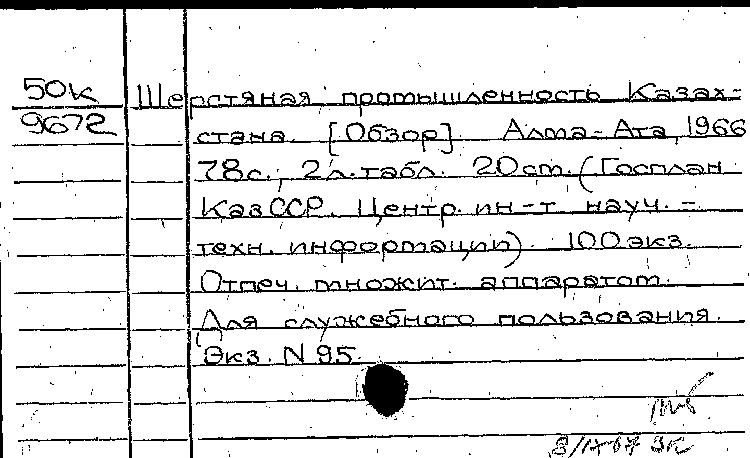 50к Шерстяная промышленность Казах-
9672 стана. [Обзор]. Алма-Ата, 1966
78с., 2л.табл. 20см. (Госплан
КазССР. Центр. ин-т науч.-
техн. информации). 100 экз.
Отпеч. множит. аппаратом.
Для служебного пользования.
Экз. N 95.